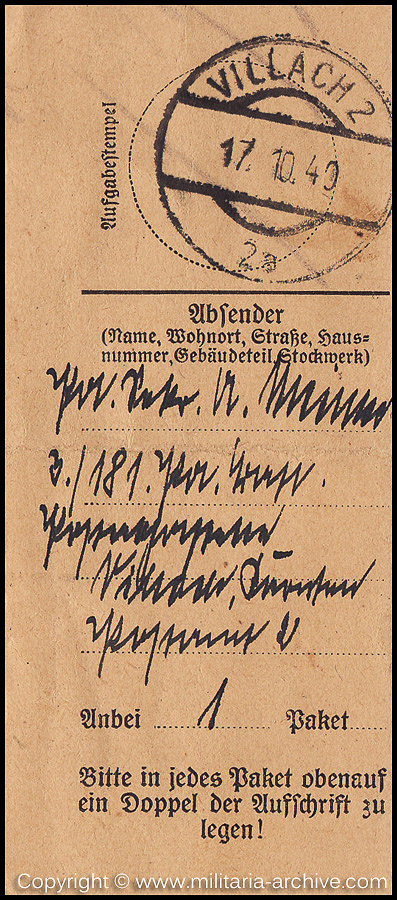 VILLACH 2
17.10.40
2a
Aufgabestempel
Absender
(Name, Wohnort, Straße, Haus=
nummer, Gebäudeteil, Stockwerk)
A.
3./181.
Villach, Kärnten
Postamt 2
Anbei 1 Paket
Bitte in jedes Paket obenauf
ein Doppel der Aufschrift zu
legen!
Copyright © www.militaria-archive.com